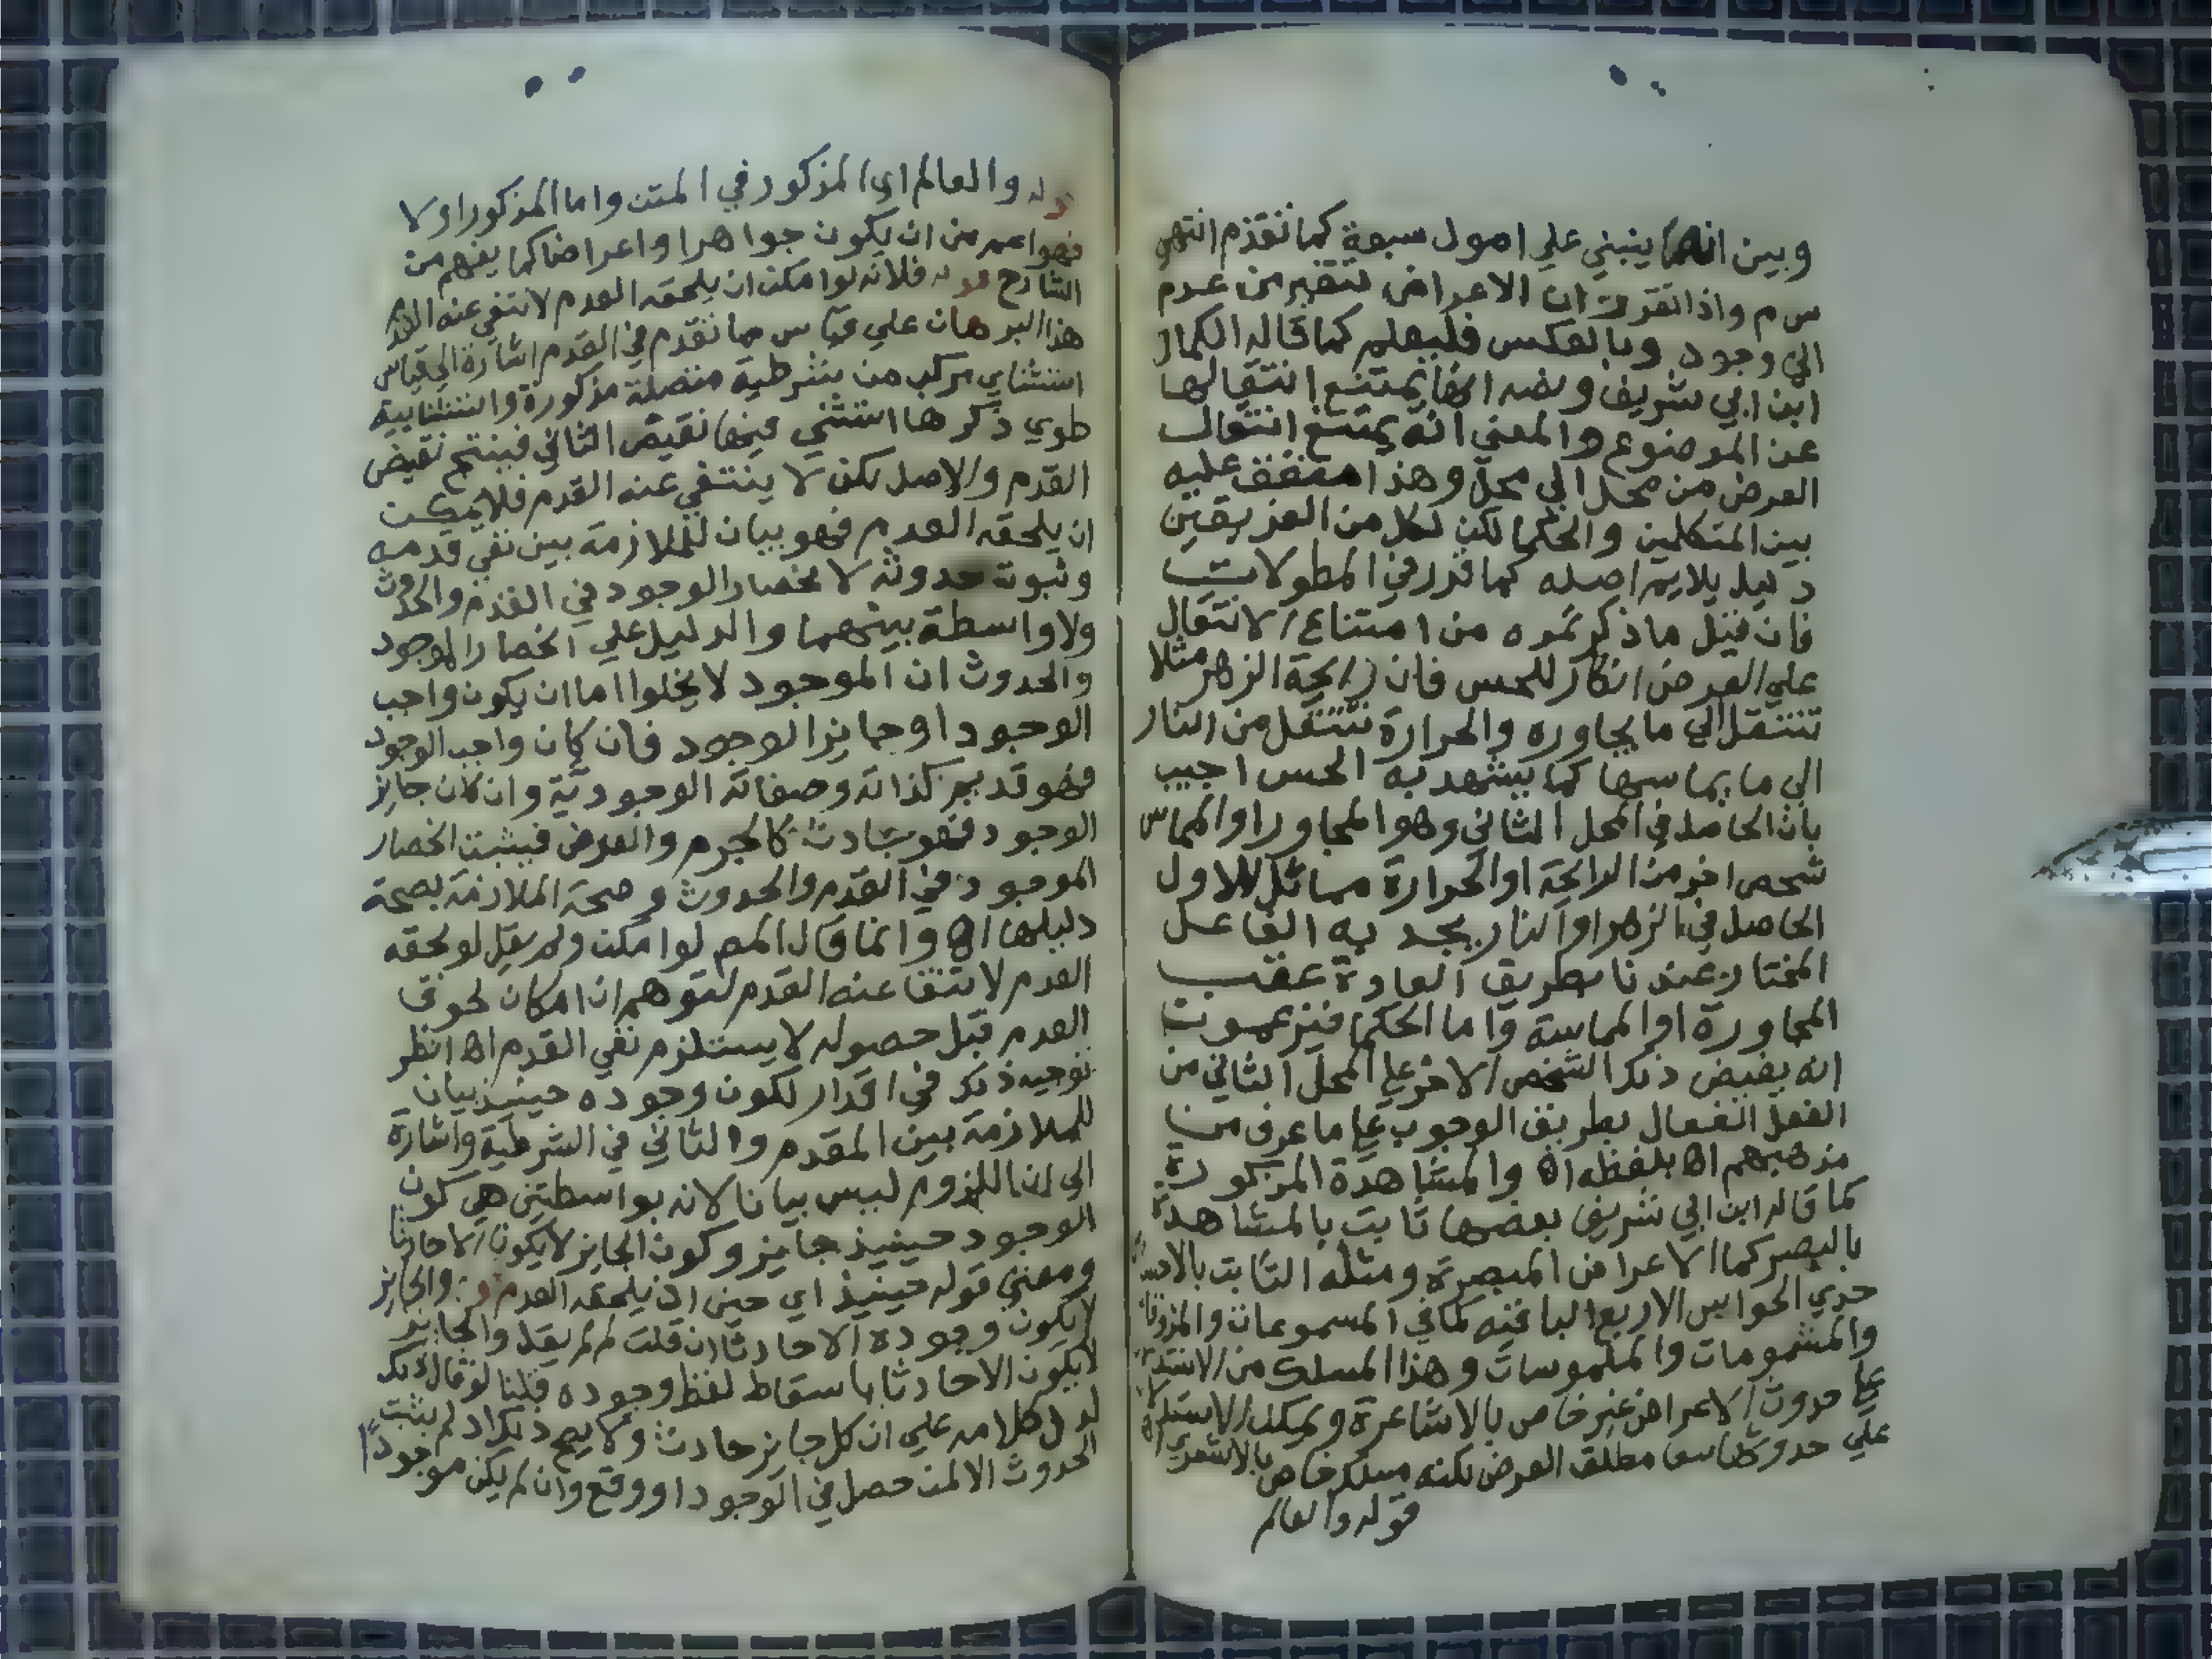 وبين انها ينبني علي اصول سبعة كما تقدم انتهي
س م واذا تقرر ان الاعراض تتغير من عدم
الي وجود وبالعكس فليعلم كما قاله الكمال
ابن ابي شريف ونصه ايضا يمتنع انتقالها
عن الموضوع والمعني انه يمتنع انتقال
العرض من محل الي محل وهذا متفق عليه
بين المتكلمين والحكما لكن لكل من الفريقين
دليل يلايم اصله كما قرر في المطولات
فان قيل ما ذكرتموه من امتناع الانتقال
علي العرض انكار للحس فان رايحة الزهر مثلا
تنتقل الي ما يجاوره والحرارة تنتقل من النار
الي ما يماسها كما يشهد به الحس اجيب
بان الحاصل في المحل الثاني وهو المجاور او المماس
شخص اخر من الرايحة او الحرارة مماثل للاول
الحاصل في الزهر او النار يجد به الفاعل
المختار عندنا بطريق العادة عقب
المجاورة او المماسة واما الحكما فيزعمون
انه يفيض ذلك الشخص الاخر علي المحل الثاني من
الفعل الفعال بطريق الوجوب علي ما عرف من
مذهبهم اه بلفظه اه والمشاهدة المذكورة
كما قاله ابن ابي شريف بعضها ثابت بالمشاهدة
بالبصر كما الاعراض المبصرة ومثله الثابت بالاحساس
حدي الحواس الاربع الباقيه كما في المسموعات والمذوقات
والمشمومات والملموسات وهذا المسلك من الاستدلال
علي حدوث الاعراض غير خاص بالاشاعرة ويمكنك الاستدلال
علي حدوثها مطلق العرض لكنه مسلك خاص بالاشعري اه
قوله والعالم
قوله والعالم اي المذكور في المتن واما المذكور اولا
فهو اعم من ان يكون جواهرا واعراضا كما يفهم من
الشارح قوله فلانه لو امكن ان يلحقه العدم لانتفي عنه القدم
هذا البرهان علي قياس ما تقدم في القدم اشارة الي قياس
استثناي مركب من شرطية متصلة مذكورة واستثنايية
طوي ذكرها استثني فيها نقيض الثاني فينتج نقيض
القدم والاصل لكن لا ينتفي عنه القدم فلا يمكن
ان يلحقه العدم فهو بيان للملازمة بين نفي قدمه
وثبوت حدوثه لانحصار الوجود في القدم والحدوث
ولا واسطة بينهما والدليل علي انحصار الموجود
والحدوث ان الموجود لا يخلوا اما ان يكون واجب
الوجود او جايز الوجود فان كان واجب الوجود
فهو قديم كذاته وصفاته الوجودية وان كان جايز
الوجود فهو حادث كالجرم والعرض فيثبت انحصار
الموجود في القدم والحدوث وصحة الملازمة بصحة
دليلها اه وانما قال المص لو امكن ولم يقل لو لحقه
العدم لانتفا عنه القدم لتوهم ان امكان لحوق
العدم قبل حصوله لا يستلزم نفي القدم اه انظر
توجيه ذلك في اقدار لكون وجوده حينيذ بيان
للملازمة بين المقدم والثاني في الشرطية واشارة
الي ان اللزوم ليس بيانا لانه بواسطتين هي كون
الوجود حينيذ جايز وكون الجايز لا يكون الا حادثا
ومعني قوله حينيذ اي حين اذ يلحقه العدم قوله والجايز
لا يكون وجوده الا حادثا ان قلت لم لم يقل والجايز
لا يكون الا حادثا باسقاط لفظ وجوده قلنا لو قال ذلك
لدل كلامه علي ان كل جايز حادث ولا يصح ذلك اذ لم يثبت
الحدوث الا لمن حصل في الوجود او وقع وان لم يكن موجودا